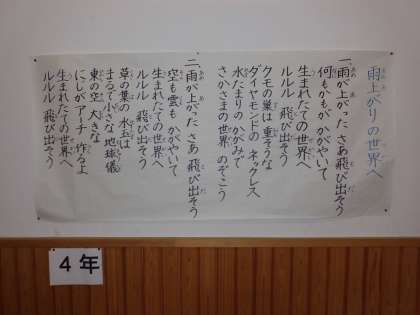 雨上がりの世界へ
一、雨が上がった さあ 飛び出そう
何もかもが かがやいて
生まれたての世界へ
ルルル 飛び出そう
クモの巣は 重そうな
ダイヤモンドの ネックレス
水たまりの かがみで
さかさまの世界 のぞこう
二、雨が上がった さあ 飛び出そう
空も雲も かがやいて
生まれたての世界へ
ルルル 飛び出そう
草の葉の 水玉は
まるで小さな 地球儀
東の空 大きな
にじがアーチ 作るよ
生まれたての世界へ
ルルル 飛び出そう
4年